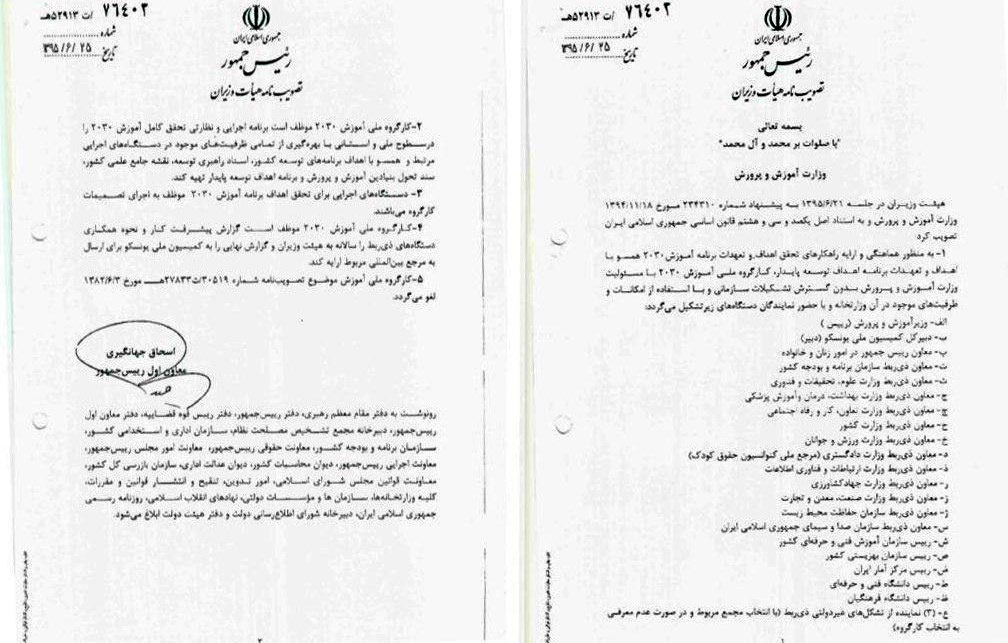 ۷۶۴۰۲ /ت ۵۲۹۱۳هـ
شماره
۱۳۹۵/۶/۲۵
تاریخ
جمهوری اسلامی ایران
رئیس جمهور
تصویب نامه هیأت وزیران
بسمه تعالی
"با صلوات بر محمد و آل محمد"
وزارت آموزش و پرورش
هیئت وزیران در جلسه ۱۳۹۵/۶/۲۱ به پیشنهاد شماره ۲۳۴۳۱۰ مورخ ۱۳۹۴/۱۱/۱۸
وزارت آموزش و پرورش و به استناد اصل یکصد و سی و هشتم قانون اساسی جمهوری اسلامی ایران
تصویب کرد
۱- به منظور هماهنگی و ارایه راهکارهای تحقق اهداف و تعهدات برنامه آموزش ۲۰۳۰ همسو با
اهداف و تعهدات برنامه اهداف توسعه پایدار، کارگروه ملی آموزش ۲۰۳۰ با مسئولیت
وزارت آموزش و پرورش بدون گسترش تشکیلات سازمانی و با استفاده از امکانات و
ظرفیت‌های موجود در آن وزارتخانه و با حضور نمایندگان دستگاه‌های زیرتشکیل می‌گردد:
الف- وزیرآموزش و پرورش (رییس )
ب- دبیرکل کمیسیون ملی یونسکو (دبیر)
پ- معاون رییس جمهور در امور زنان و خانواده
ت- معاون ذی‌ربط سازمان برنامه و بودجه کشور
ث- معاون ذی‌ربط وزارت علوم، تحقیقات و فناوری
ج- معاون ذی‌ربط وزارت بهداشت، درمان وآموزش پزشکی
چ- معاون ذی‌ربط وزارت تعاون، کار و رفاه اجتماعی
ح- معاون ذی‌ربط وزارت کشور
خ- معاون ذی‌ربط وزارت ورزش و جوانان
د- معاون ذی‌ربط وزارت دادگستری (مرجع ملی کنوانسیون حقوق کودک)
ذ- معاون ذی‌ربط وزارت ارتباطات و فناوری اطلاعات
ر- معاون ذی‌ربط وزارت جهادکشاورزی
ز- معاون ذی‌ربط وزارت صنعت، معدن و تجارت
ژ- معاون ذی‌ربط سازمان حفاظت محیط زیست
س- معاون ذی‌ربط سازمان صدا و سیمای جمهوری اسلامی ایران
ش- رییس سازمان آموزش فنی و حرفه‌ای کشور
ص- رییس سازمان بهزیستی کشور
ض- رییس مرکز آمار ایران
ط- رییس دانشگاه فنی و حرفه‌ای
ظ- رییس دانشگاه فرهنگیان
ع- (۳) نماینده از تشکل‌های غیردولتی ذی‌ربط (با انتخاب مجمع مربوط و در صورت عدم معرفی
به انتخاب کارگروه)
۱
۷۶۴۰۲ /ت ۵۲۹۱۳هـ
شماره
۱۳۹۵/۶/۲۵
تاریخ
جمهوری اسلامی ایران
رئیس جمهور
تصویب نامه هیأت وزیران
۲-کارگروه ملی آموزش ۲۰۳۰ موظف است برنامه اجرایی و نظارتی تحقق کامل آموزش ۲۰۳۰ را
درسطوح ملی و استانی با بهره‌گیری از تمامی ظرفیت‌های موجود در دستگاه‌های اجرایی
مرتبط و همسو با اهداف برنامه‌های توسعه کشور، اسناد راهبردی توسعه، نقشه جامع علمی کشور،
سند تحول بنیادین آموزش و پرورش و برنامه اهداف توسعه پایدار تهیه کند.
۳- دستگاه‌های اجرایی برای تحقق اهداف برنامه آموزش ۲۰۳۰ موظف به اجرای تصمیمات
کارگروه می‌باشند.
۴-کارگروه ملی آموزش ۲۰۳۰ موظف است گزارش پیشرفت کار و نحوه همکاری
دستگاه‌های ذی‌ربط را سالانه به هیئت وزیران و گزارش نهایی را به کمیسیون ملی یونسکو برای ارسال
به مرجع بین‌المللی مربوط ارایه کند.
۵-کارگروه ملی آموزش موضوع تصویب‌نامه شماره ۳۰۵۱۹/ت۲۷۸۳۳هـ مورخ ۱۳۸۲/۶/۳
لغو می‌گردد.
اسحاق جهانگیری
معاون اول رییس‌جمهور
رونوشت به دفتر مقام معظم رهبری، دفتر رییس‌جمهور، دفتر رییس قوه قضاییه، دفتر معاون اول
رییس‌جمهور، دبیرخانه مجمع تشخیص مصلحت نظام، سازمان اداری و استخدامی کشور،
سازمان برنامه و بودجه کشور، معاونت حقوقی رییس‌جمهور، معاونت امور مجلس رییس‌جمهور،
معاونت اجرایی رییس‌جمهور، دیوان محاسبات کشور، دیوان عدالت اداری، سازمان بازرسی کل کشور،
معاونت قوانین مجلس شورای اسلامی، امور تدوین، تنقیح و انتشار قوانین و مقررات،
کلیه وزارتخانه‌ها، سازمان ها و مؤسسات دولتی، نهادهای انقلاب اسلامی، روزنامه رسمی
جمهوری اسلامی ایران، دبیرخانه شورای اطلاع‌رسانی دولت و دفتر هیئت دولت ابلاغ می‌شود.
۲